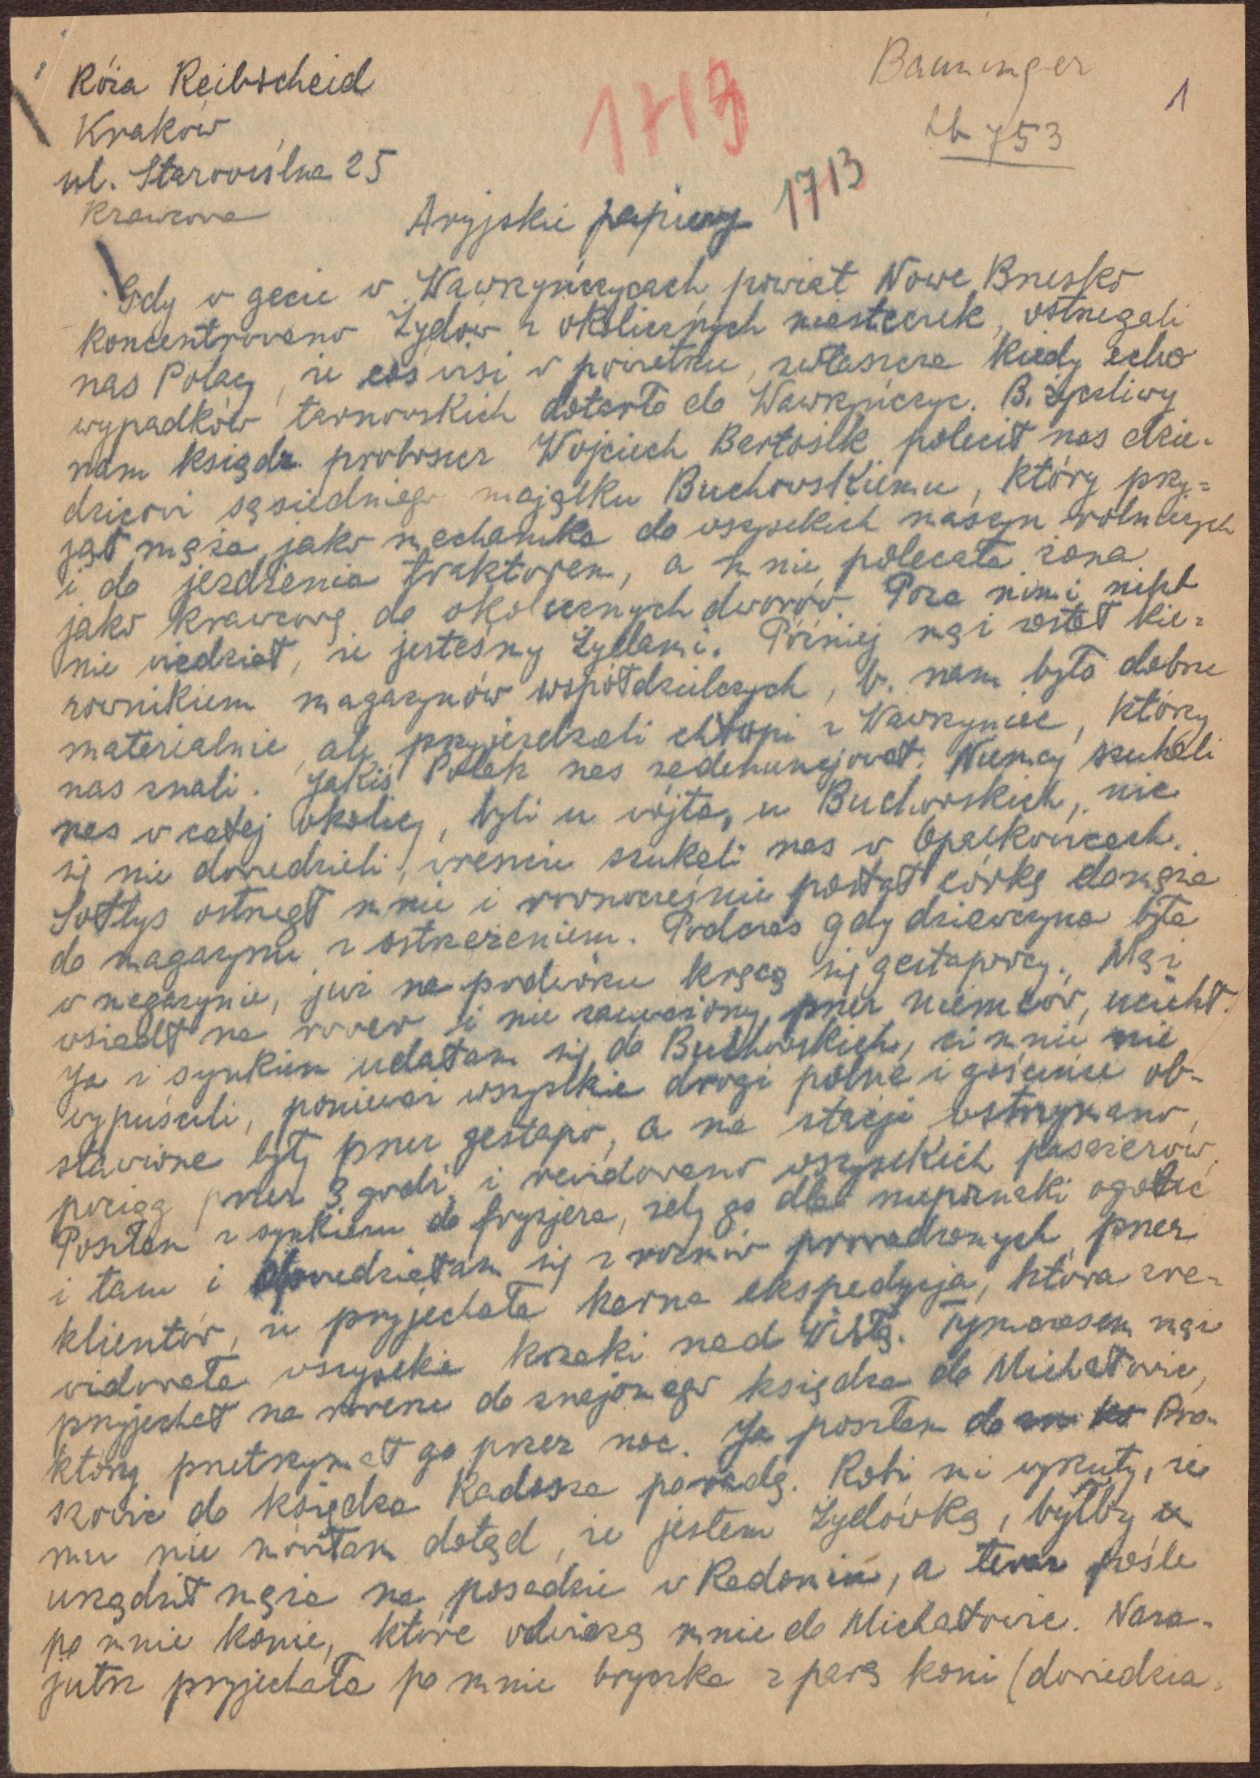 Róża Reibscheid
Kraków
ul. Starowiślna 25
Krawcowa
1713
Bauminger
Lb 753
1
1713
Aryjskie papiery
Gdy w gecie w Wawrzyńczycach powiat Nowe Brzesko
koncentrowano Żydów z okolicznych miasteczek, ostrzegali
nas Polacy, że coś wisi w powietrzu, zwłaszcza kiedy echo
wypadków tarnowskich dotarło do Wawrzyńczyc. B. życzliwy
nam ksiądz proboszcz Wojciech Bartosik polecił nas dzie-
dzicowi sąsiedniego majątku Buchowskiemu, który przy=
jął męża jako mechanika do wszystkich maszyn rolniczych
i do jeżdżenia traktorem, a mnie polecała żona
jako krawcową do okolicznych dworów. Poza nimi nikt
nie wiedział, że jesteśmy Żydami. Później mąż został kie=
rownikiem magazynów współdzielczych, b. nam było dobrze
materialnie, ale przyjeżdżali chłopi z Wawrzyniec, którzy
nas znali. Jakiś Polak nas zadenuncjował. Niemcy szukali
nas w całej okolicy, byli u wójta, u Buchowskich, nic
się nie dowiedzieli, wreszcie szukali nas w Opatkowicach.
Sołtys ostrzegł mnie i równocześnie posłał córkę do męża
do magazynu z ostrzeżeniem. Podczas gdy dziewczyna była
w magazynie, już na podwórzu kręcą się gestapowcy. Mąż
wsiadł na rower i nie zauważony przez Niemców, uciekł.
Ja z synkiem udałam się do Buchowskich, ci mnie nie
wypuścili, ponieważ wszystkie drogi polne i gościńce ob-
stawione były przez gestapo, a na stacji wstrzymano
pociąg przez 3 godz. i rewidowano wszystkich pasażerów.
Poszłam z synkiem do fryzjera, żeby go dla niepoznaki ogolić
i tam i dowiedziałam się z rozmów prowadzonych przez
klientów, że przyjechała karna ekspedycja, która zre-
widowała wszystkie krzaki nad Wisłą. Tymczasem mąż
przyjechał na rowerze do znajomego księdza do Michałowic,
który przetrzymał go przez noc. Ja poszłam do Pro-
szowic do księdza Radosza po radę. Robi mi wyrzuty, że
mu nie mówiłam dotąd, że jestem Żydówką, byłby
urządził męża na posadzie w Radomiu, a teraz pośle
po mnie konie, które odwiozą mnie do Michałowic. Naza-
jutrz przyjechała po mnie bryczka z parą koni (dowiedzia-